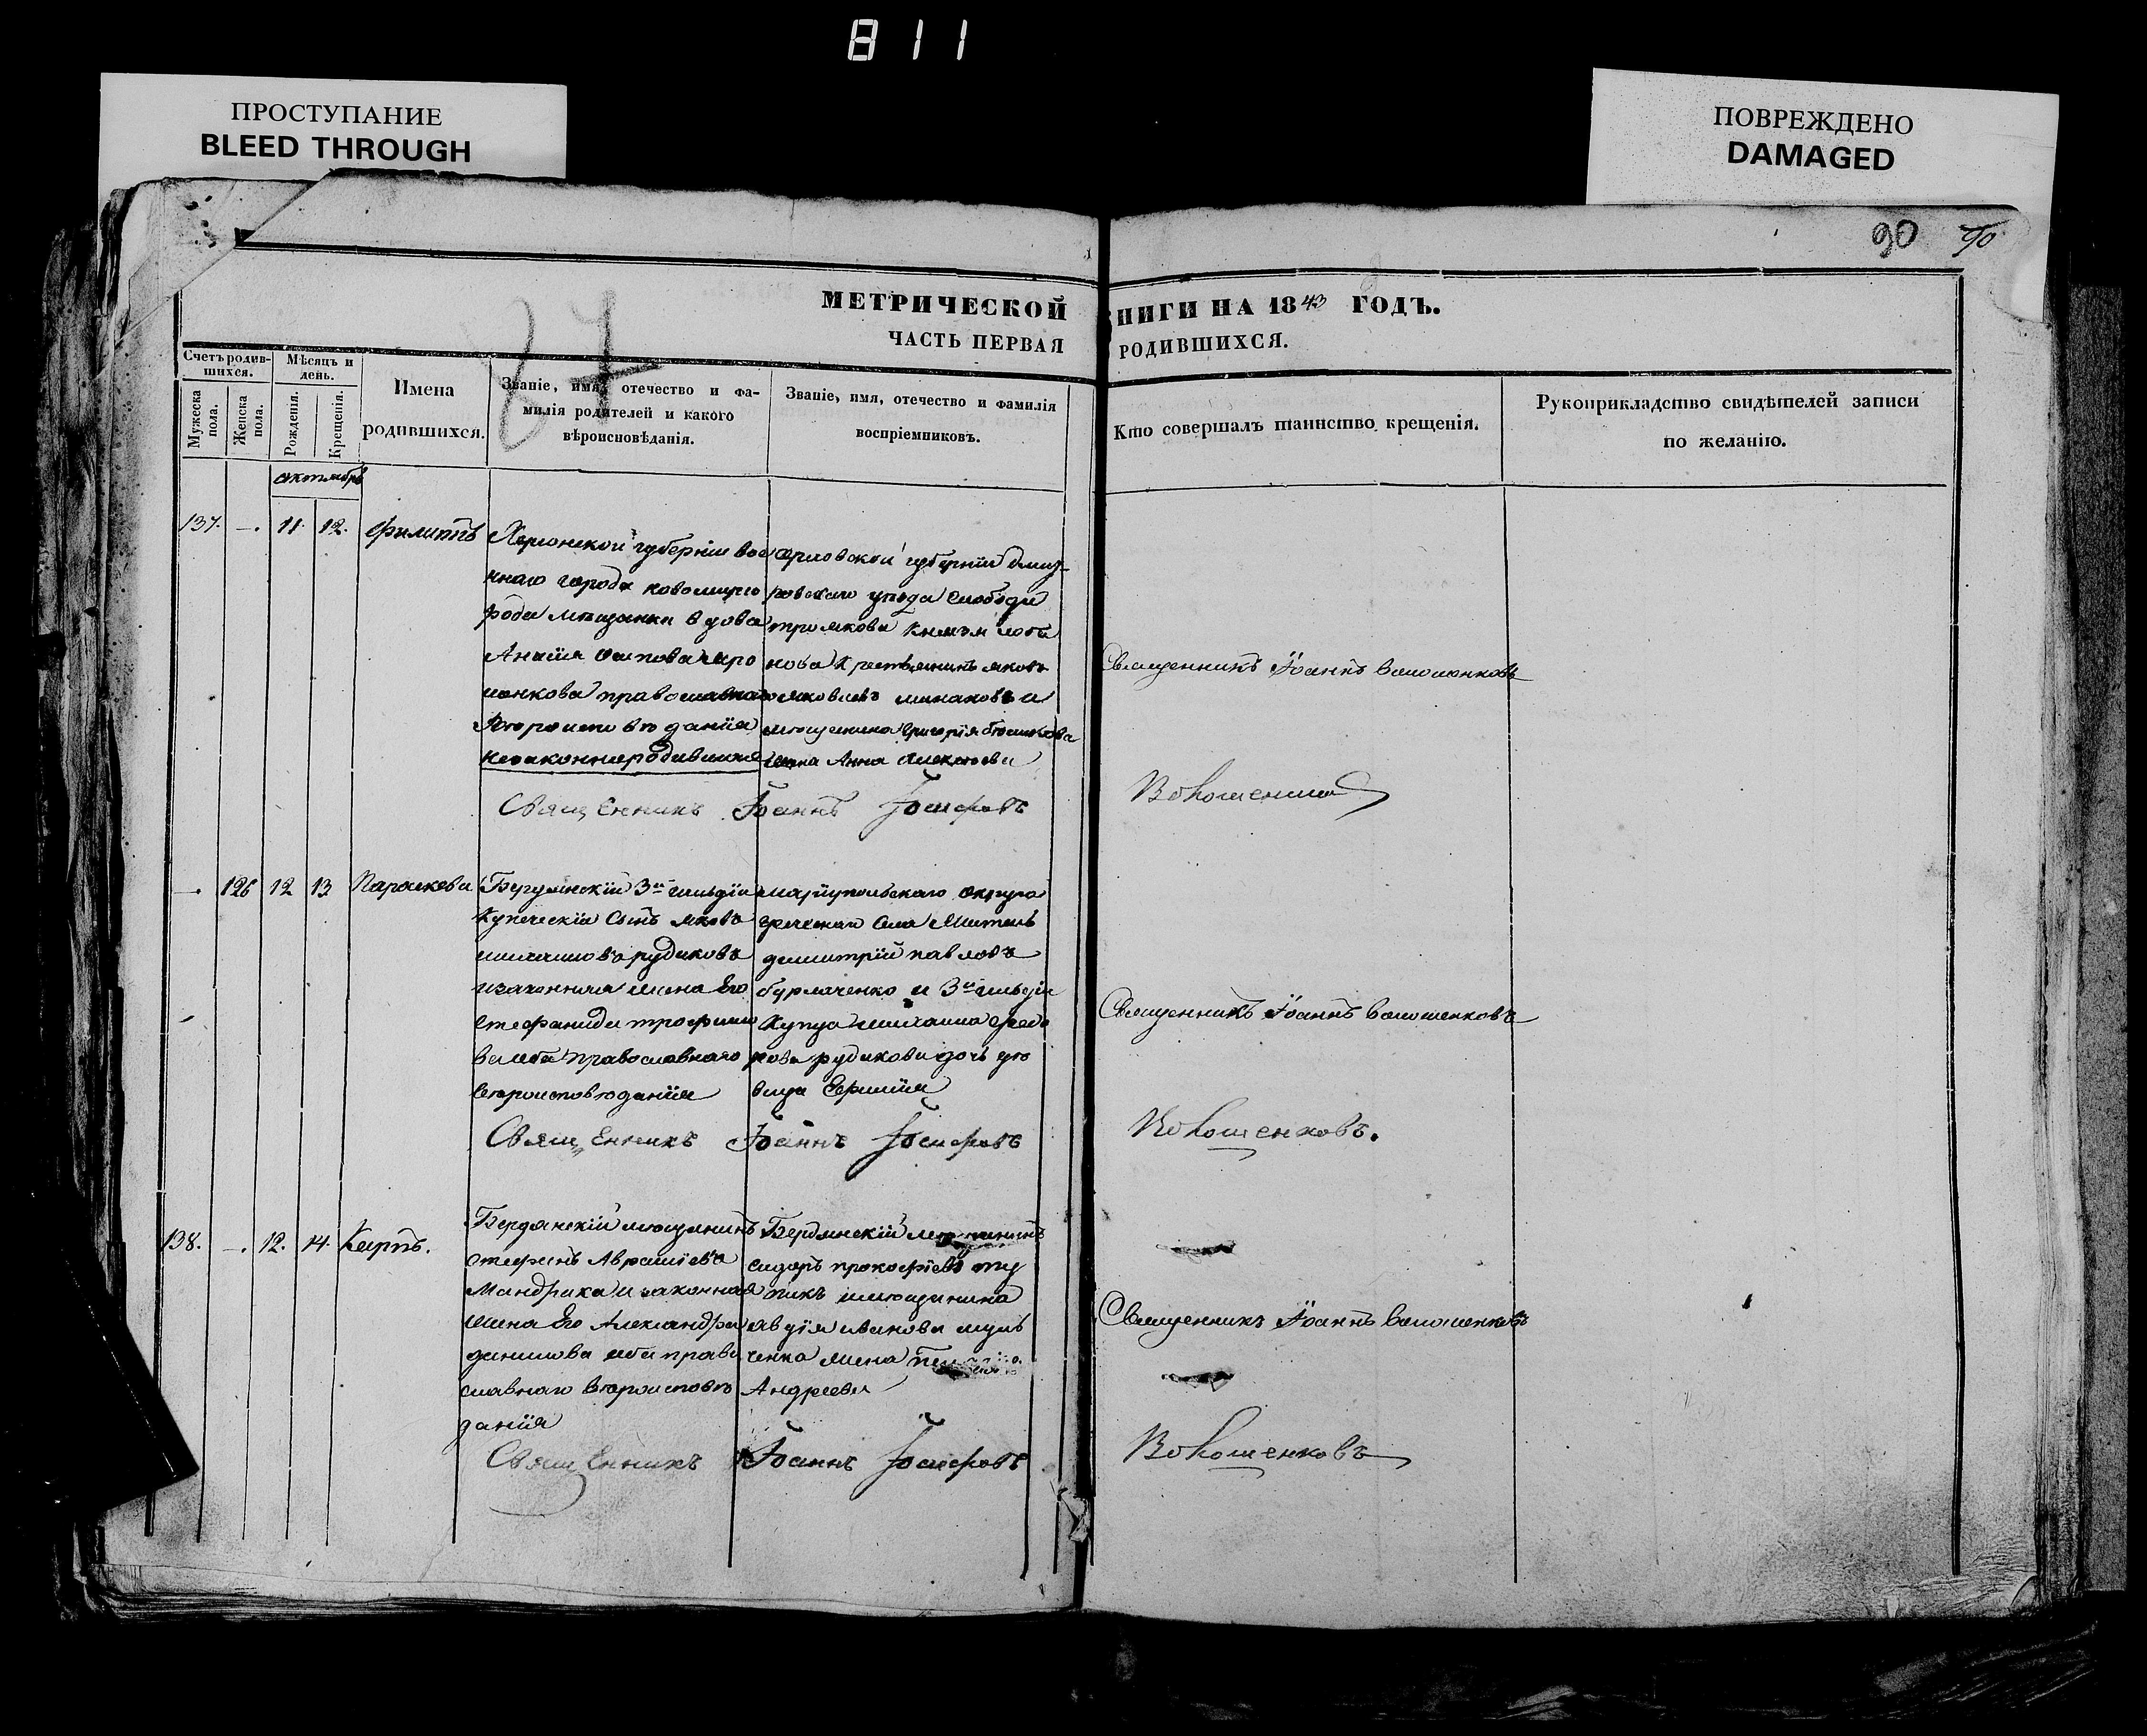 811
ПРОСТУПАНИЕ
BLEED THROUGH
ПОВРЕЖДЕНО
DAMAGED
90 90
МЕТРИЧЕСКОЙ
НИГИ НА 1843 ГОДЪ.
ЧАСТЬ ПЕРВАЯ
РОДИВШИХСЯ.
Счетъ родив-
шихся.
Мужеска
пола.
Женска
пола.
Мѣсяцъ и
день.
Рожденія.
Крещенія.
Имена
родившихся.
Званіе, имя, отечество и фа-
милія родителей и какого
вѣроисповѣданія.
Званіе, имя, отечество и фамилія
воспріемниковъ.
Кто совершалъ таинство крещенія.
Рукоприкладство свидѣтелей записи
по желанію.
октябрь
137. —. 11. 12. Филиппъ
Херсонской губерніи вое
ннаго города новомирго
рода мѣщанка вдова
Анна Осипова
православнаго
вѣроисповѣданія
незаконнорожденный
орловской губерніи дмит
ровскаго уѣзда слободы
крестьянинъ яковъ
яковлевъ минаковъ и
мѣщанина григорія
жена Анна Алексѣева
Священникъ Іоаннъ волошенковъ
Священникъ Іоаннъ Іосифовъ
—. 126 12 13 Параскева
Бердянскій 3й гильдіи
купеческій сынъ яковъ
михаиловъ рудиковъ
и законная жена Его
стефанида трофимо
ва оба православнаго
вѣроисповѣданія
маріупольскаго округа
греческаго села житель
димитрій павловъ
бурлаченко и 3й гильдіи
купца михаила
рудикова дочь дѣ
вица Ефимія
Священникъ Іоаннъ волошенковъ
Священникъ Іоаннъ Іосифовъ
Волошенковъ.
138. —. 12. 14. Карпъ.
Бердянскій мѣщанинъ
стефанъ Авраміевъ
Мандрика и законная
жена Его Александра
данилова оба право
славнаго вѣроисповѣ
данія
Бердянскій мѣщанинъ
сидоръ прокофіевъ
мѣщанина
иванова
ченка жена
Андреева
Священникъ Іоаннъ волошенковъ
Священникъ Іоаннъ Іосифовъ
Волошенковъ